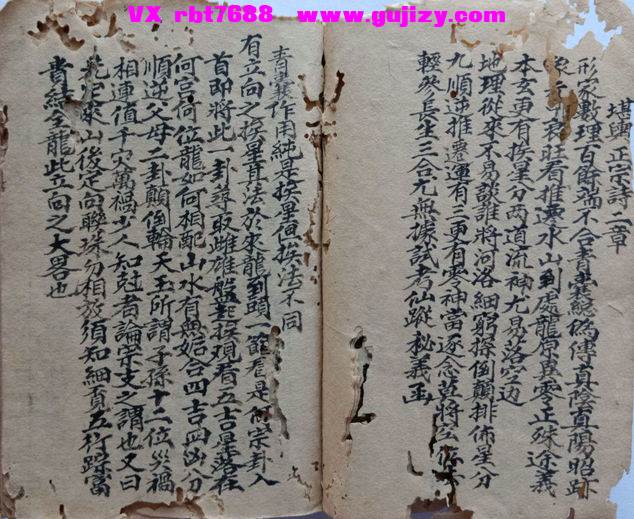 VX rbt7688 www.gujizy.com
堪輿正宗詩二章
形家數理百餘端不合青囊總偽傳真陰真陽昭跡
衰旺看推遷水山到處龍原異零正殊途義
本玄更有挨星分两道流神尤易落空边
地理從來不易談誰將河洛細窮探倒顛排佈星分
九順逆推遷運有三更有零神當逐念莫將空
輕參長生三合尤無據試考仙蹤秘義函
青囊作用純是挨星但挨法不同
有立向之挨星其法於來龍到頭一節看是何宗卦入
首即將此一卦尋取雌雄盤起挨观看五吉星落在
何宫何位龍如何相配山水有無始合四吉四凶分
順逆父母二卦顛倒輪天玉所謂子孫十二位災禍
相連值千灾萬禍少人知尅者論宗支之謂也又曰
先定來山後定向聯珠勿相放須知細覓五行踪富
貴結全龍此立向之大畧也